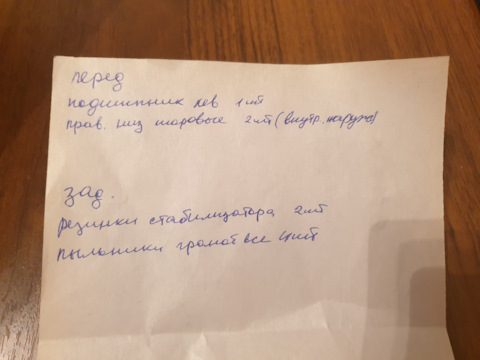 перед
подшипник лев 1шт
прав. низ шаровые 2шт (внутр. наружн)
зад.
резинки стабилизатора 2шт
пыльники гранат все 4шт